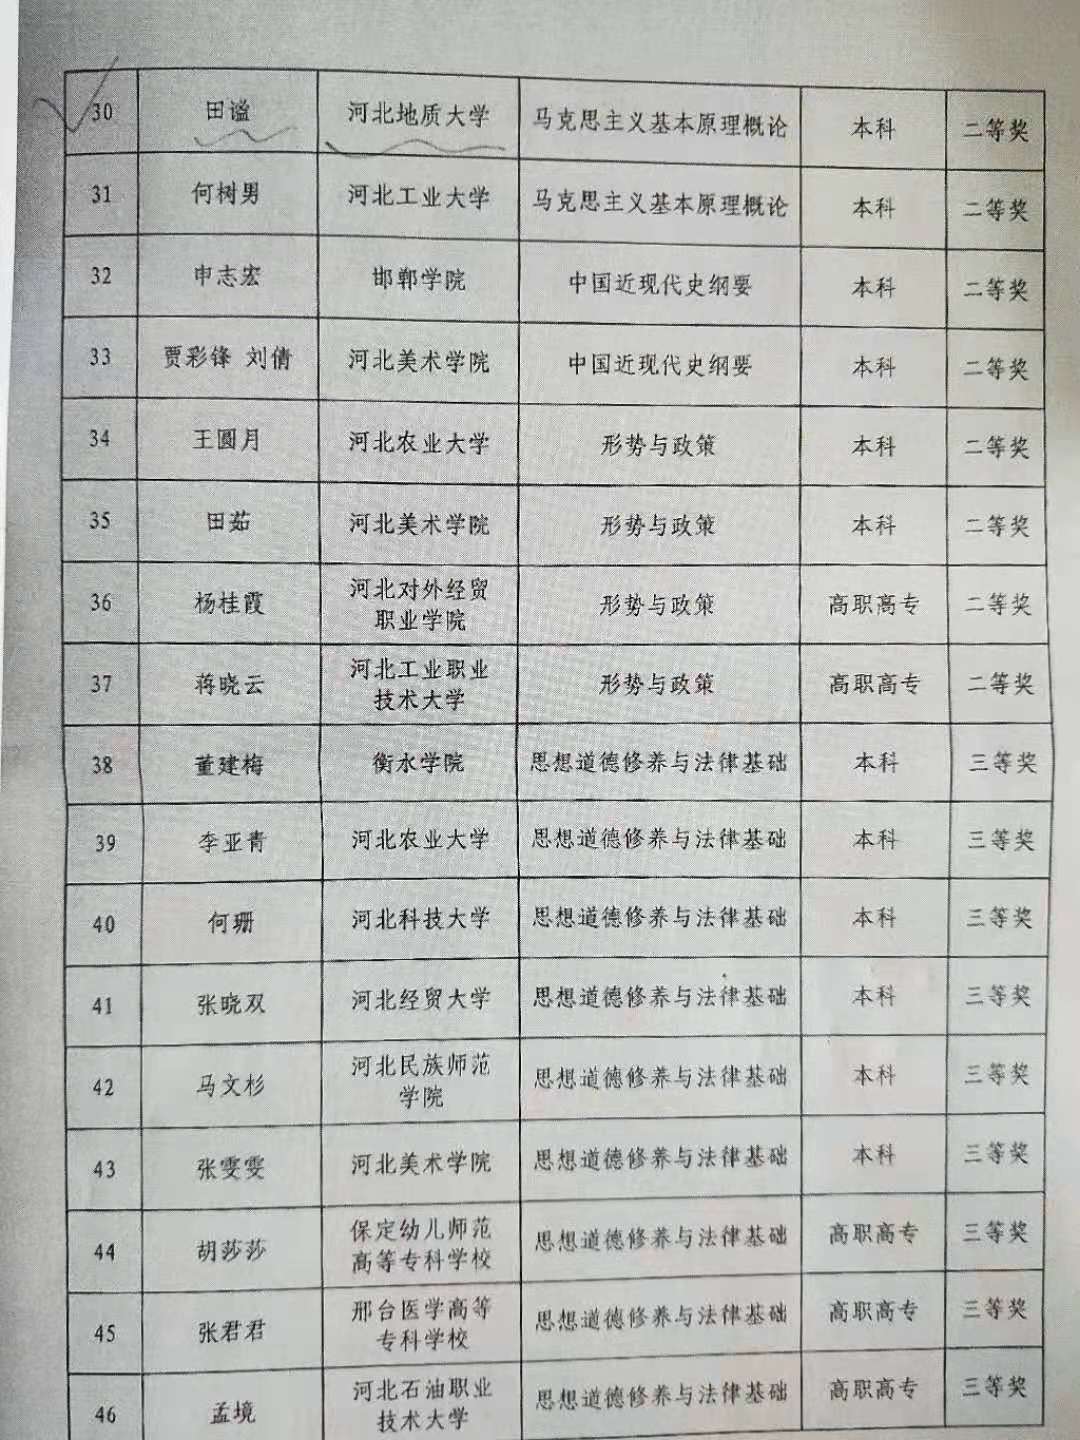 30 田谧 河北地质大学 马克思主义基本原理概论 本科 二等奖
31 何树男 河北工业大学 马克思主义基本原理概论 本科 二等奖
32 申志宏 邯郸学院 中国近现代史纲要 本科 二等奖
33 贾彩锋 刘倩 河北美术学院 中国近现代史纲要 本科 二等奖
34 王圆月 河北农业大学 形势与政策 本科 二等奖
35 田茹 河北美术学院 形势与政策 本科 二等奖
36 杨桂霞 河北对外经贸
职业学院 形势与政策 高职高专 二等奖
37 蒋晓云 河北工业职业
技术大学 形势与政策 高职高专 二等奖
38 董建梅 衡水学院 思想道德修养与法律基础 本科 三等奖
39 李亚青 河北农业大学 思想道德修养与法律基础 本科 三等奖
40 何珊 河北科技大学 思想道德修养与法律基础 本科 三等奖
41 张晓双 河北经贸大学 思想道德修养与法律基础 本科 三等奖
42 马文杉 河北民族师范
学院 思想道德修养与法律基础 本科 三等奖
43 张雯雯 河北美术学院 思想道德修养与法律基础 本科 三等奖
44 胡莎莎 保定幼儿师范
高等专科学校 思想道德修养与法律基础 高职高专 三等奖
45 张君君 邢台医学高等
专科学校 思想道德修养与法律基础 高职高专 三等奖
46 孟境 河北石油职业
技术大学 思想道德修养与法律基础 高职高专 三等奖